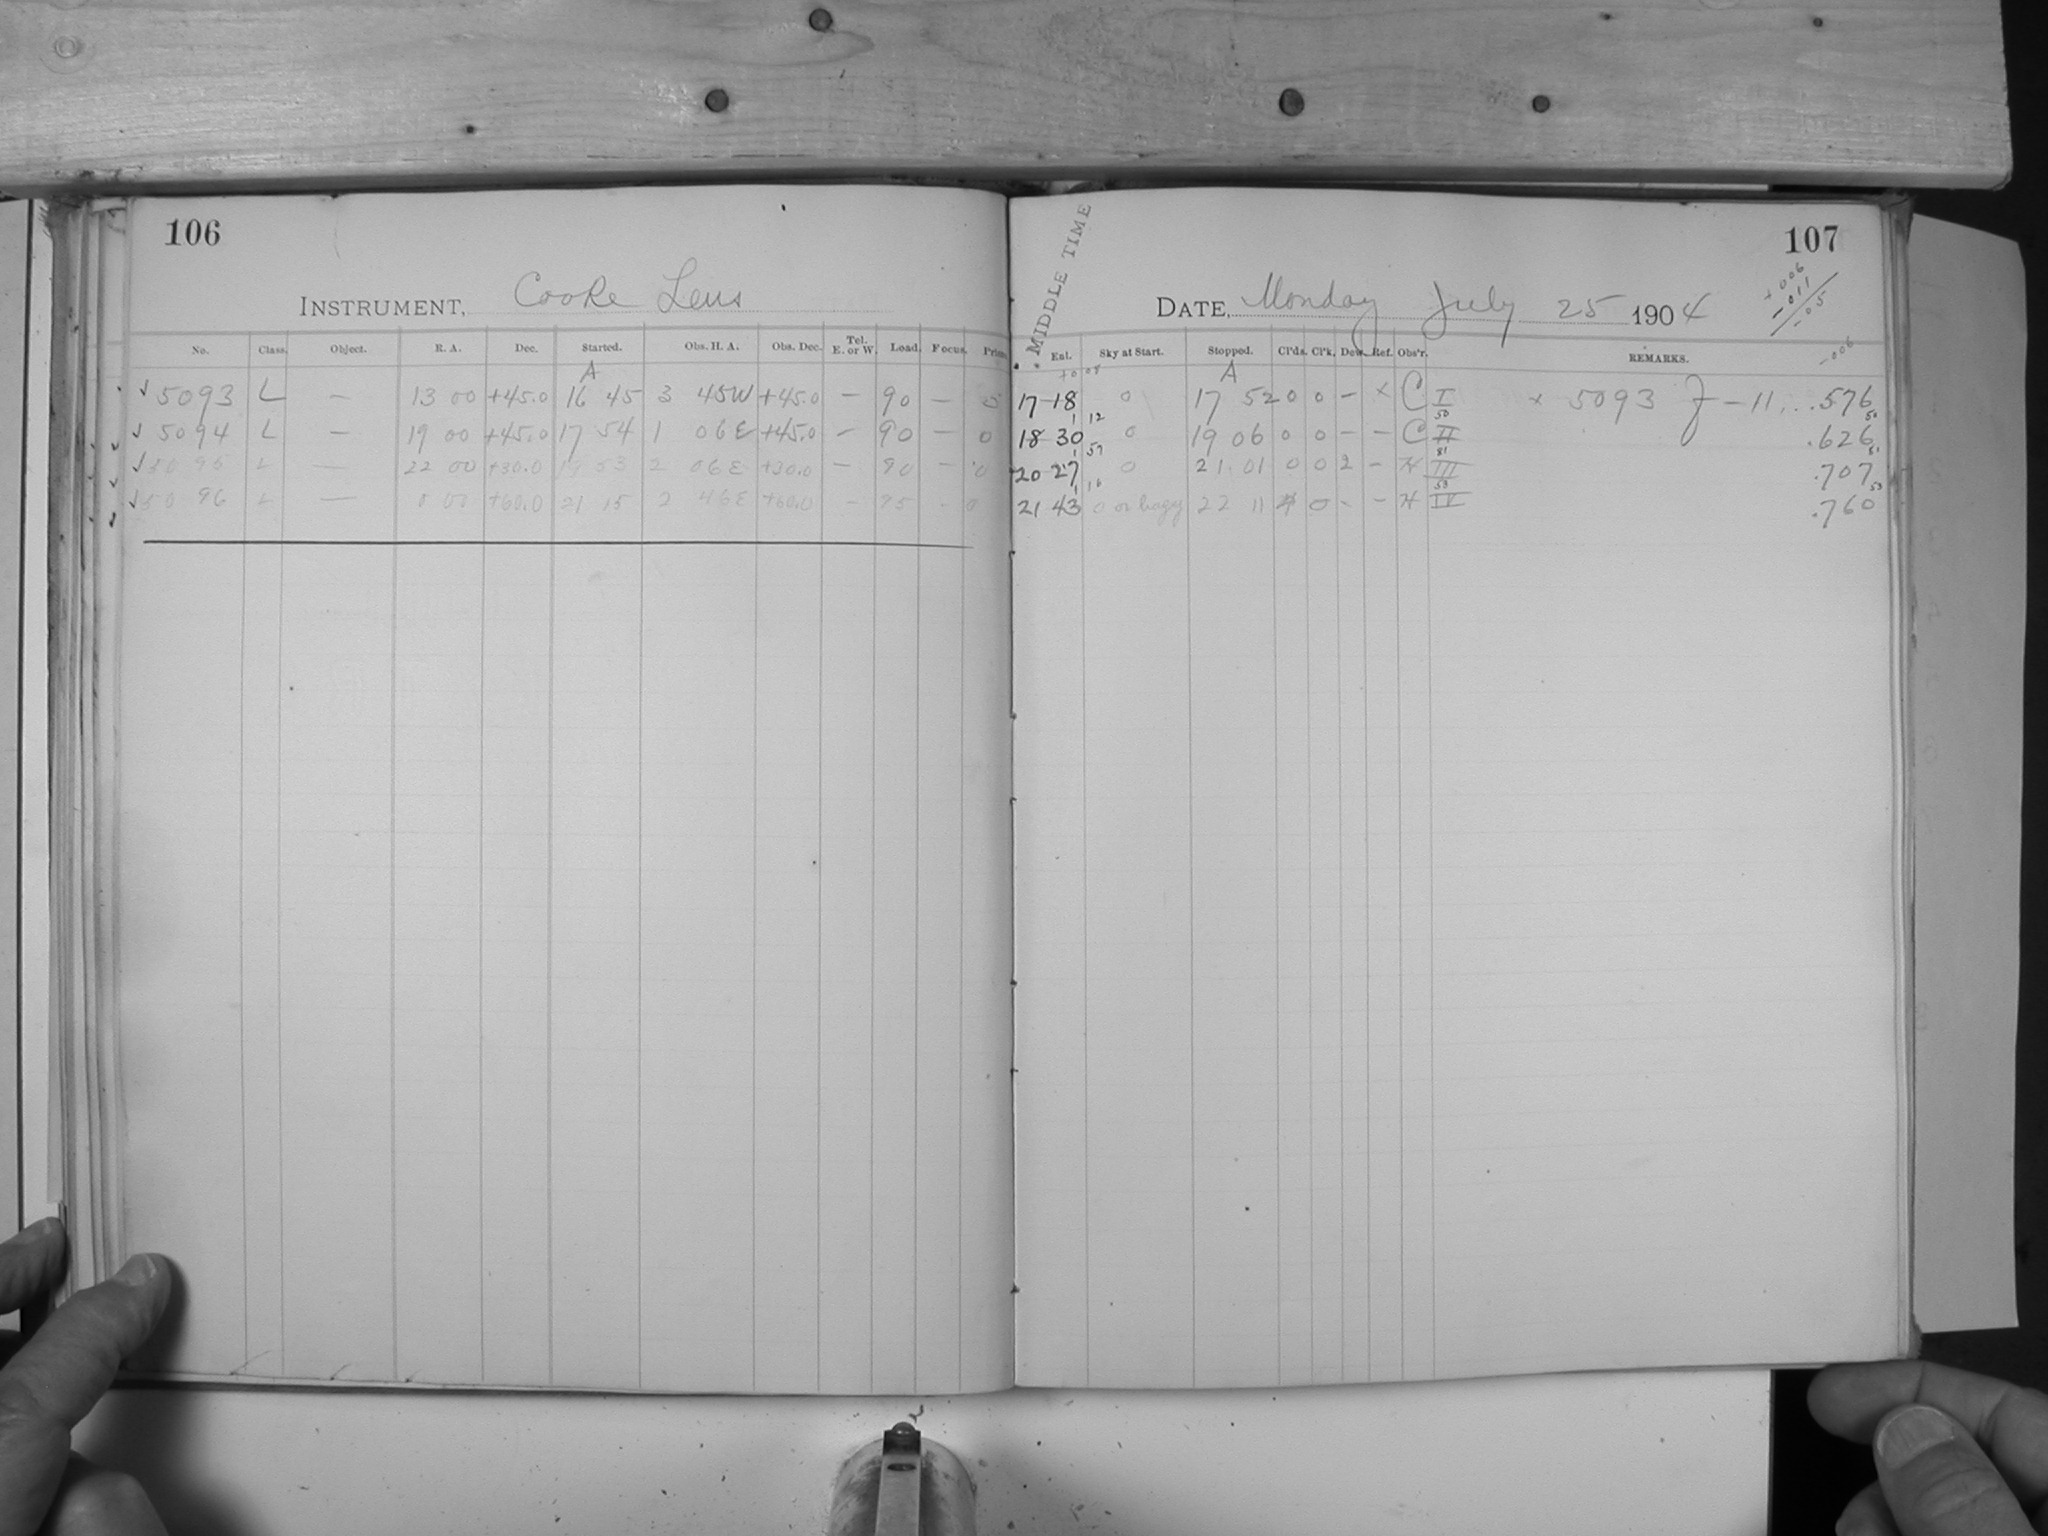 106
INSTRUMENT, Cooke Lens
No. Class. Object. R. A. Dec. Started. Obs. H. A. Obs. Dec. Tel. E. or W. Load. Focus.
A
✓ 5093 L — 13 00 +45.0 16 45 3 45W +45.0 — 90 —
✓ 5094 L — 19 00 +45.0 17 54 1 06E +45.0 — 90 — 0
✓ 5095 L — 22 00 +30.0 19 53 2 06E +30.0 — 90 — 0
✓ 5096 L — 0 00 +60.0 21 15 2 46E +60.0 – 85 - 0
107
MIDDLE TIME
DATE, Monday July 25 1904
+006
-011
-05
-006
Ent. Sky at Start. Stopped. Cl'ds. Cl'k. Dew. Ref. Obs'r. REMARKS.
A
17 18 0 17 52 0 0 – x C I x 5093 J – 11 .. .576
1 12 50 50
18 30 0 19 06 0 0 – – C II .626
1 57 81 81
20 27 0 21 01 0 0 2 – H III .707
1 16 53 53
21 43 0 or hazy 22 11 0 - – H IV .760